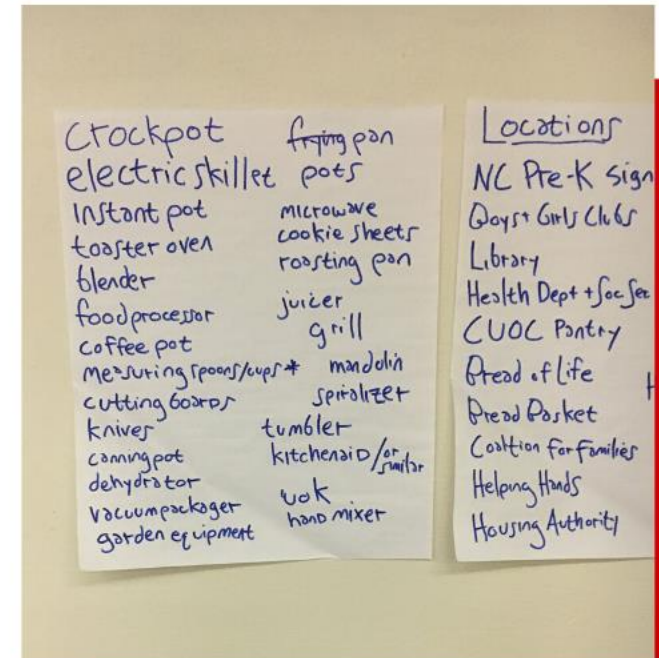 Crockpot
electric skillet
Instant pot
toaster oven
blender
food processor
coffee pot
measuring spoons/cups *
cutting boards
knives
canning pot
dehydrator
vacuum packager
garden equipment
frying pan
pots
microwave
cookie sheets
roasting pan
juicer
grill
mandolin
spiralizer
tumbler
kitchenaid/or similar
wok
hand mixer
Locations
NC Pre-K Sign
Boys + Girls Clubs
Library
Health Dept + Soc Ser
CUOC Pantry
Bread of Life
Bread Basket
Coalition for Families
Helping Hands
Housing Authority